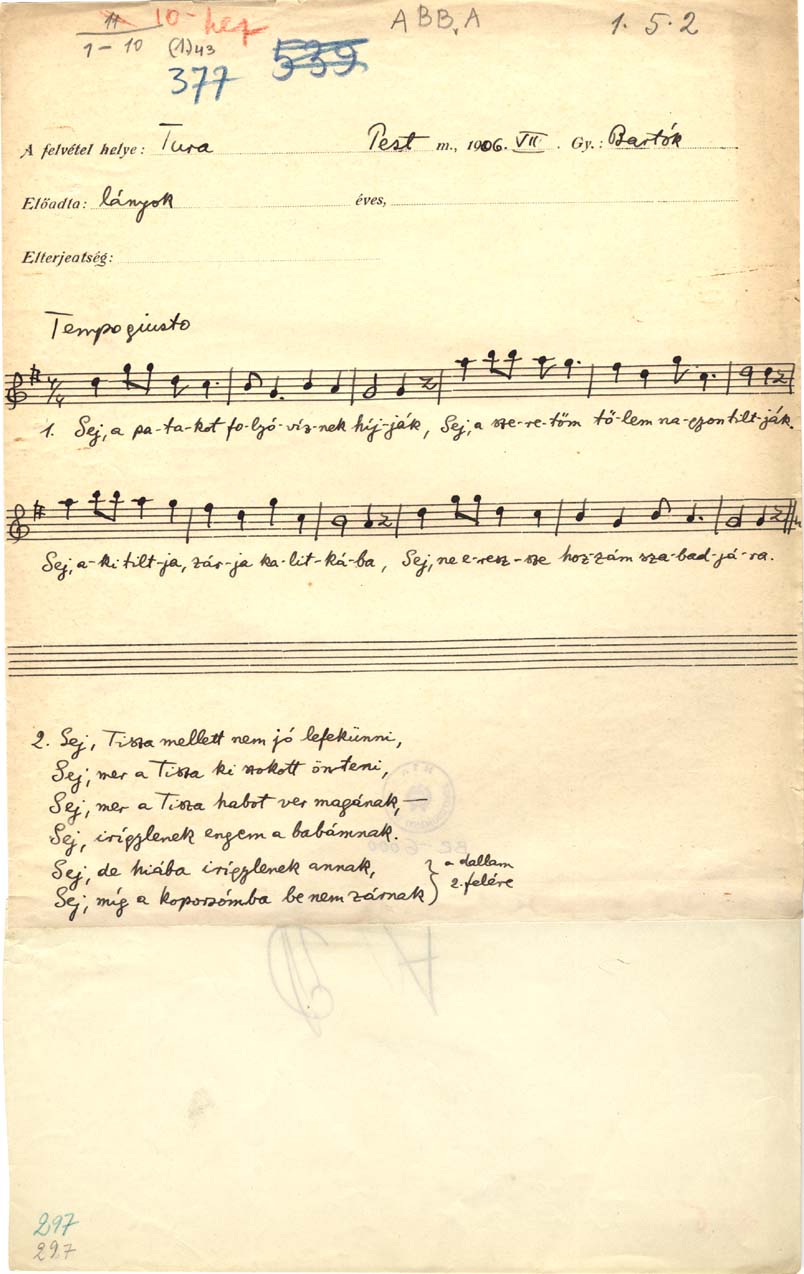 11 10-hez ABBvA 1. 5. 2
1-10 (1)43
377 539
A felvétel helye: Tura Pest m., 1906. VII. Gy.: Bartók
Előadta: lányok éves,
Elterjeatség:
Tempo giusto
4/4
1. Sej, a pa-ta-kot fo-lyó-víz-nek híj-ják, Sej, a sze-re-tőm tő-lem na-gyon tilt-ják.
Sej, a-ki tilt-ja, zár-ja ka-lit-ká-ba, Sej, ne e-resz-sze hoz-zám sza-bad-já-ra.
2. Sej, Tisza mellett nem jó lefekünni,
Sej, mer a Tisza ki szokott önteni,
Sej, mer a Tisza habot ver magának, —
Sej, irígylenek engem a babámnak.
Sej, de hiába irígylenek annak, } a dallam
Sej, míg a koporsómba be nem zárnak } 2. felére
297
297